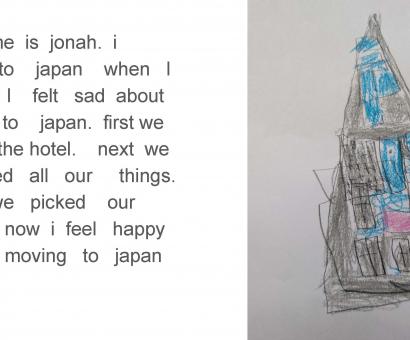 is jonah. i
to japan when I
I felt sad about
to japan. first we
the hotel. next we
all our things.
picked our
now i feel happy
moving to japan